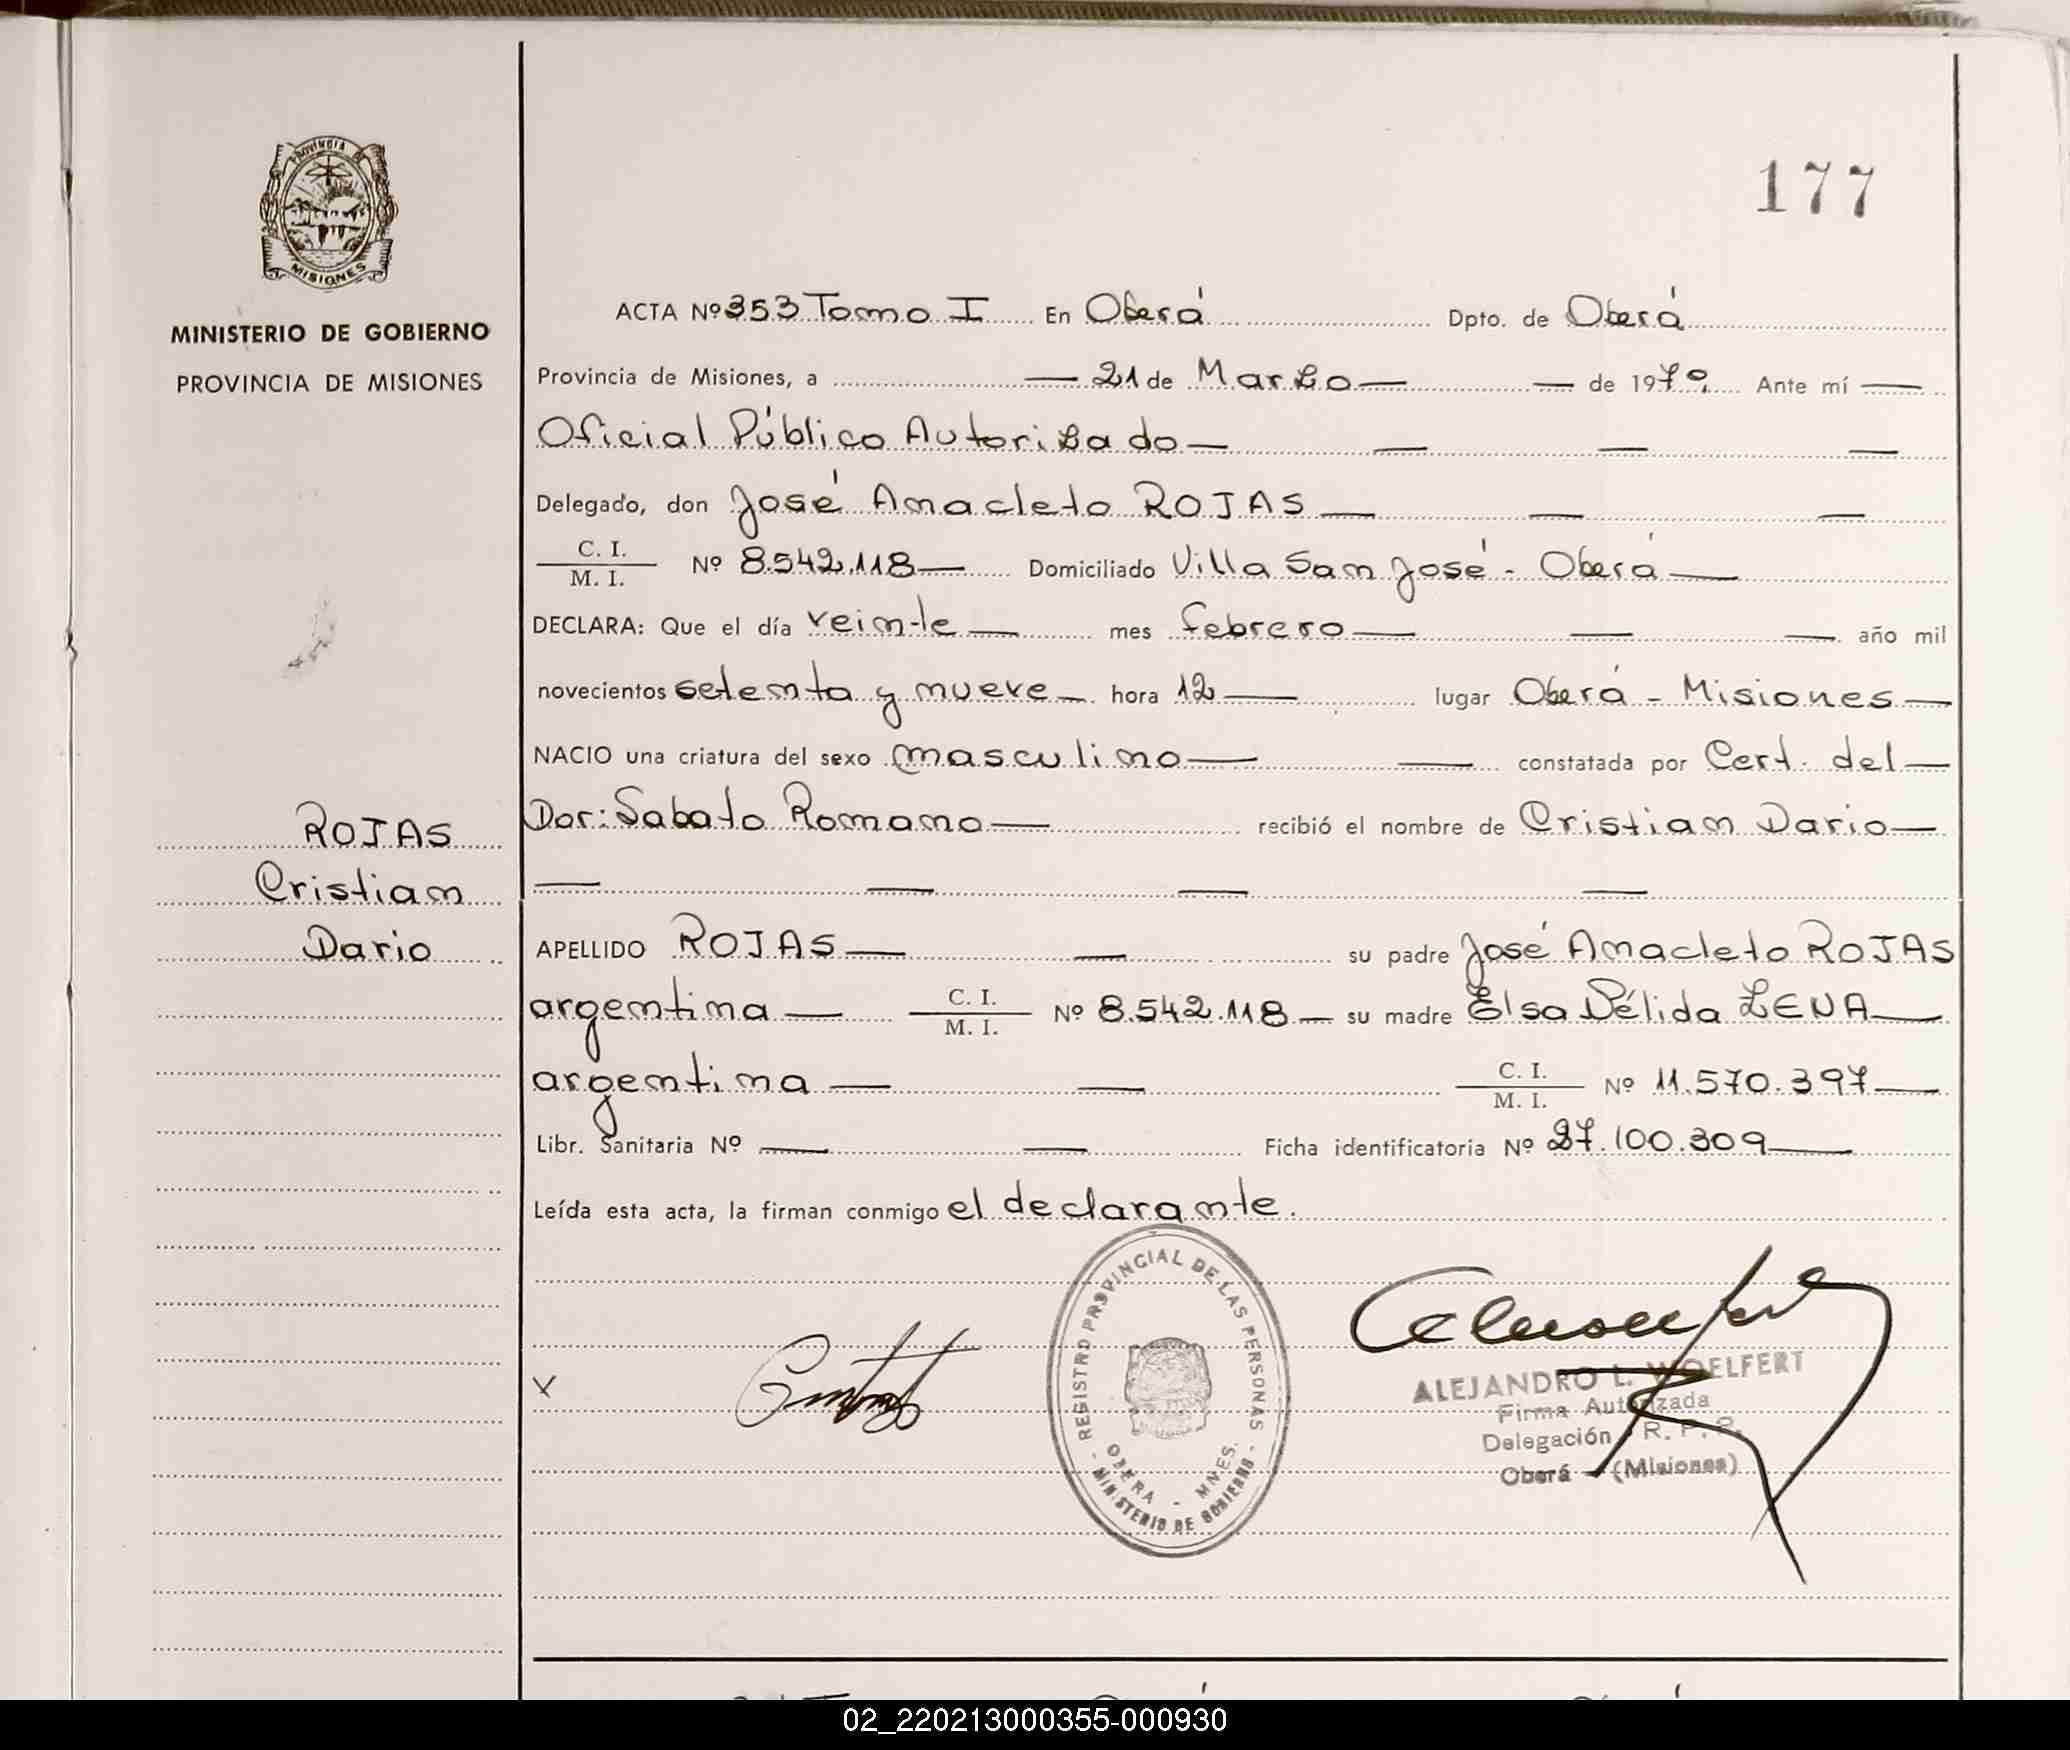 177
PROVINCIA DE
MISIONES
MINISTERIO DE GOBIERNO
PROVINCIA DE MISIONES
ROJAS
Cristian
Dario
ACTA Nº 353 Tomo I En Oberá Dpto. de Oberá
Provincia de Misiones, a — 21 de Marzo — — de 1979 Ante mí —
Oficial Público Autorizado — — — —
Delegado, don José Anacleto ROJAS — — —
C. I.
M. I. Nº 8.542.118 — Domiciliado Villa San José - Oberá —
DECLARA: Que el día veinte — mes febrero — — — año mil
novecientos setenta y nueve — hora 12 — lugar Oberá - Misiones —
NACIO una criatura del sexo masculino — — constatada por Cert. del —
Dor: Sabato Romano — recibió el nombre de Cristian Dario —
— — — —
APELLIDO ROJAS — — su padre José Anacleto ROJAS
argentina — C. I.
M. I. Nº 8.542.118 — su madre Elsa Délida LENA —
argentina — — C. I.
M. I. Nº 11.570.397 —
Libr. Sanitaria Nº — — Ficha identificatoria Nº 27.100.309 —
Leída esta acta, la firman conmigo el declarante.
X
REGISTRO PROVINCIAL DE LAS PERSONAS
OBERA - MNES.
MINISTERIO DE GOBIERNO
ALEJANDRO L. WOELFERT
Firma Autorizada
Delegación R. P. P.
Oberá — (Misiones)
02_220213000355-000930